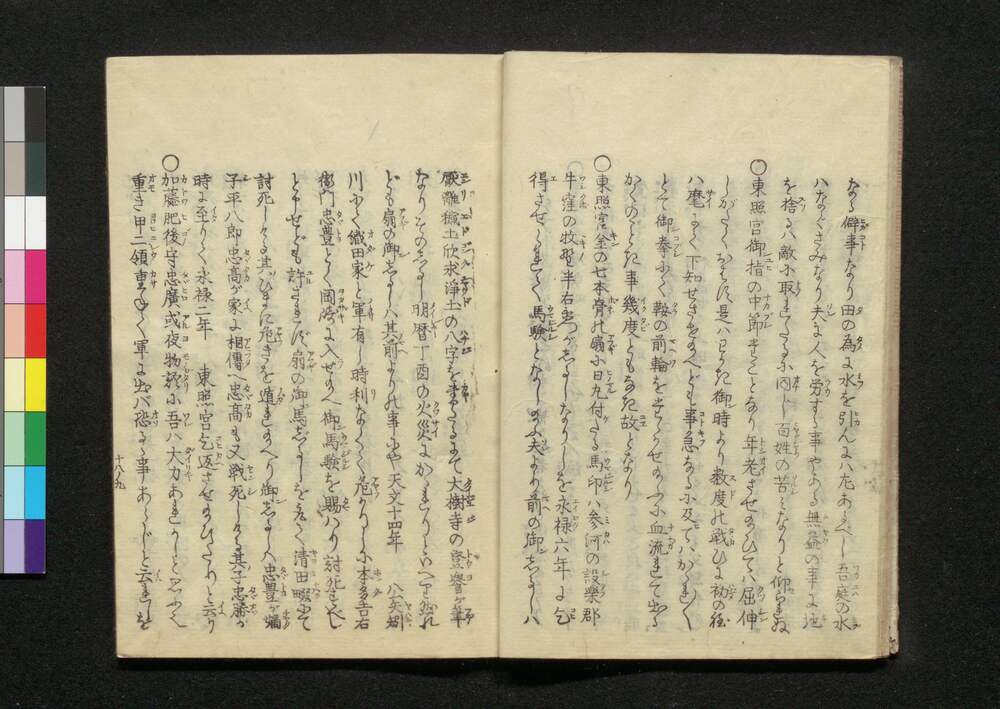 なる僻事なり田の為に水を引んにハ左あるべし吾庭の水
ハなぐさみなり夫に人を労する事やある無益の事に
を捨るハ敵に取るゝに同じ百姓の苦となりと仰られぬ
○東照宮御指の中節まことなり年老させ給ひてハ屈伸
しがたくおはす是ハ御時より数度の戦ひに初の程
ハ麾にて下知せさせ給へども事急なるに及てハかゝれ
とて御拳にて鞍の前輪をたゝかせ給ふに血流れて出る
かくのごとき事幾度ともなき故となり
○東照宮金の七本骨の扇に日丸付たる馬印ハ参河の設楽郡
牛窪の牧野半右衛門がしるしなりしを永禄六年に乞
得させられて馬験となし給ふ夫より前の御しるしハ
厭離穢土欣求浄土の八字を書たるにて大樹寺の登誉が筆
なりそのしるし明暦丁酉の火災にかゝれりといへり然れ
ども扇の御しるしハ其前よりの事にや天文十四年 八矢
川にて織田家と軍有し時利なくして危かりしに本多吉右
衛門忠豊とく岡崎に入せ給へ御馬験を賜ハり討死すべし
とせども許さず扇の御馬じるしを 清田畷にて
討死しける其ひまに危きを遁れ給へり御しるしハ忠豊が嫡
子平八郎忠高が家に相傳へ忠高も又戦死しける其子忠勝が
時に至りて永禄二年 東照宮乞返させ給ひたりと云り
○加藤肥後守忠廣或夜物語に吾ハ大力あれかしと思ふ
重き甲二領重ねて軍に出バ恐るゝ事あらじと云れしを
十八ノ九